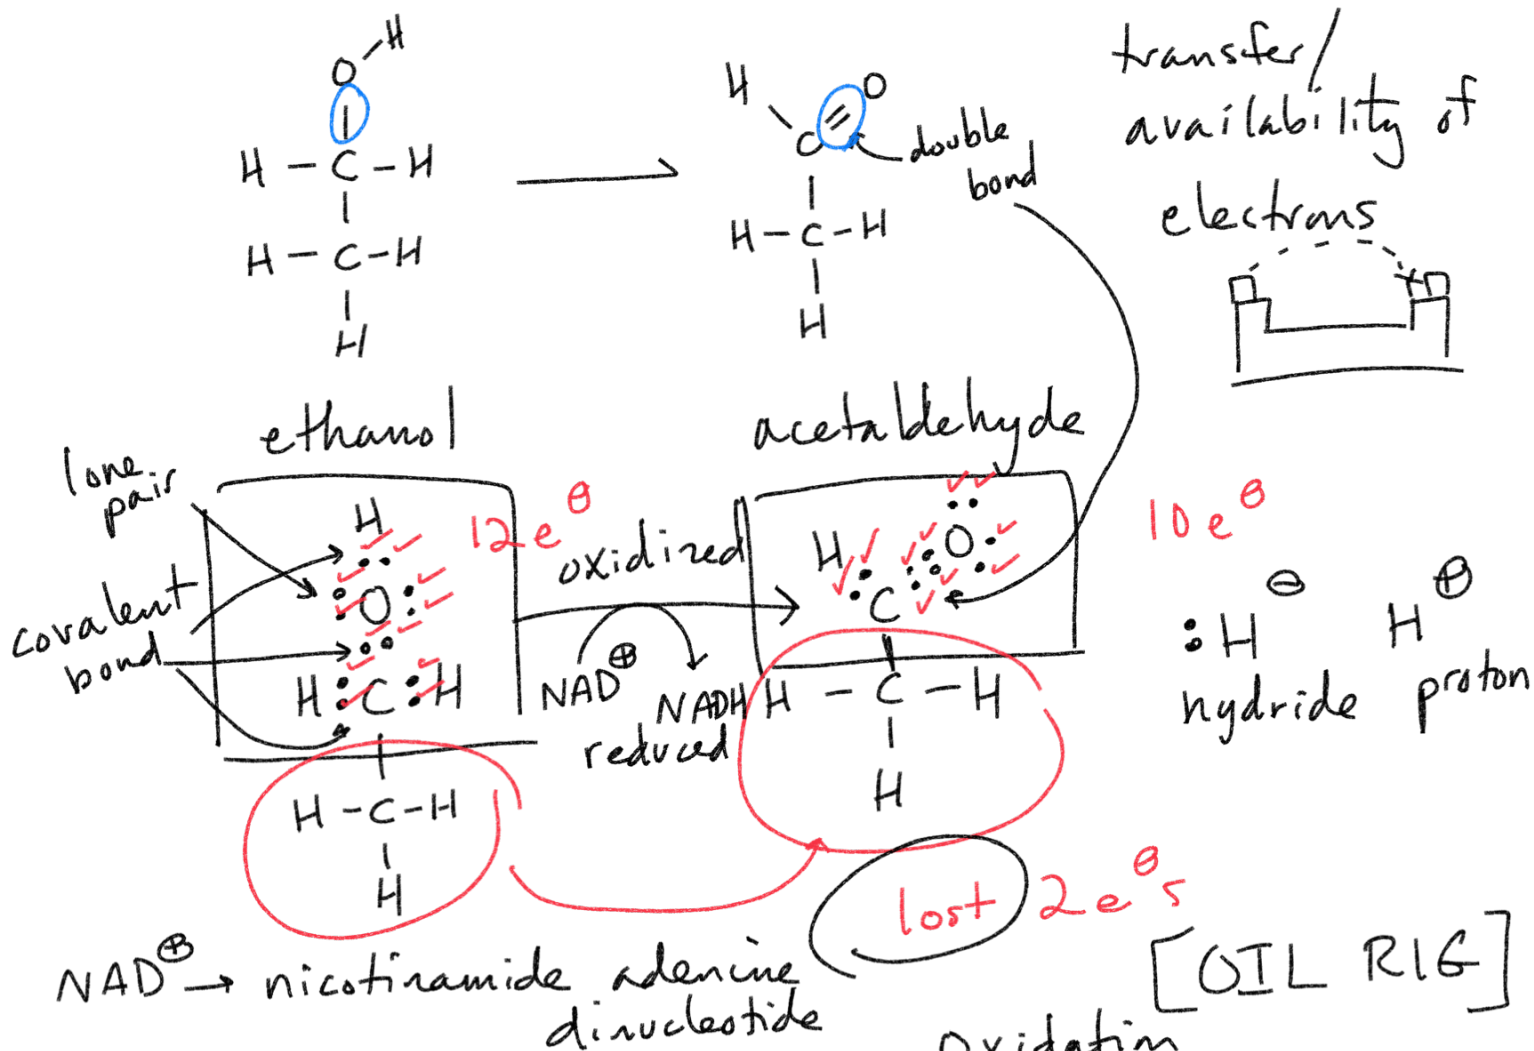 O-H
H-C-H
H-C-H
H
ethanol
H
C=O
double
bond
H-C-H
H
acetaldehyde
transfer/
availability of
electrons
lone
pair
covalent
bond
H
O
H:C:H
H-C-H
H
12e⊖
oxidized
NAD⊕
NADH
reduced
H
O
C
H-C-H
H
10e⊖
:H⊖
hydride
H⊕
proton
lost 2e⊖s
[OIL RIG]
NAD⊕ → nicotinamide adenine
dinucleotide
oxidation